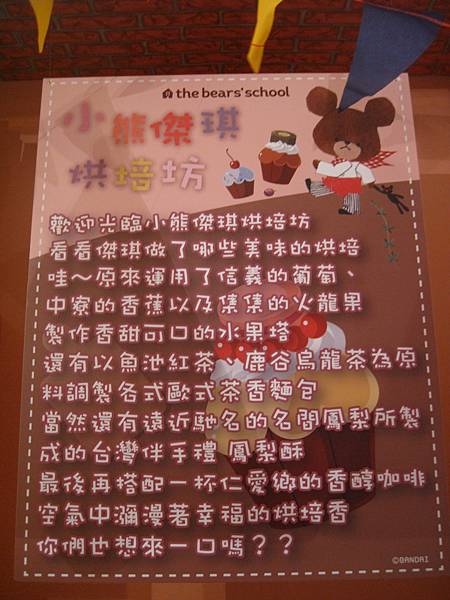 the bears' school
小熊傑琪
烘培坊
歡迎光臨小熊傑琪烘培坊
看看傑琪做了哪些美味的烘培
哇～原來運用了信義的葡萄、
中寮的香蕉以及集集的火龍果
製作香甜可口的水果塔
還有以魚池紅茶、鹿谷烏龍茶為原
料調製各式歐式茶香麵包
當然還有遠近馳名的名間鳳梨所製
成的台灣伴手禮 鳳梨酥
最後再搭配一杯仁愛鄉的香醇咖啡
空氣中瀰漫著幸福的烘培香
你們也想來一口嗎？？
©BANDAI